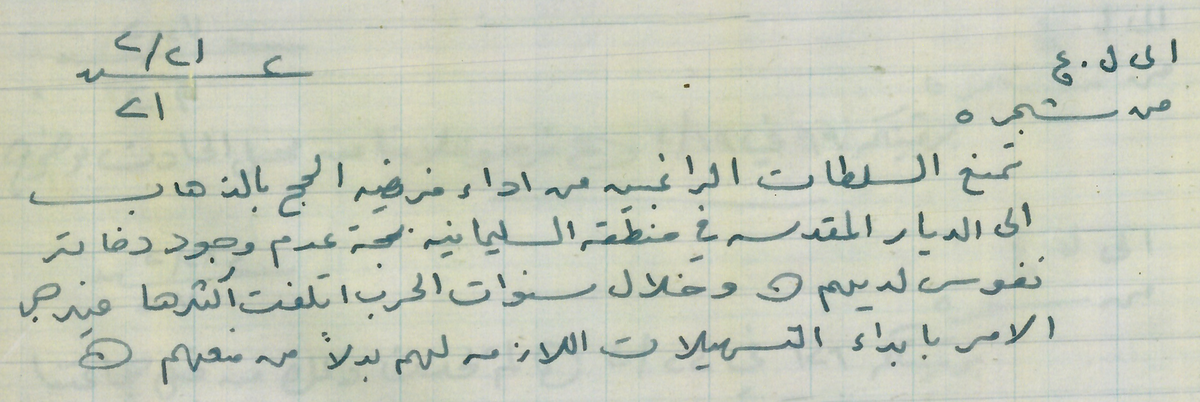 الى ل.ع
٢/٢١
٢١
من شجره
تمنع السلطات الراغبين من اداء فريضه الحج بالذهاب
الى الديار المقدسه في منطقه السليمانيه بحجة عدم وجود دفاتر
نفوس لديهم وخلال سنوات الحرب اتلفت أكثرها فيرجى
الامر بابداء التسهيلات اللازمه لهم بدلاً من منعهم